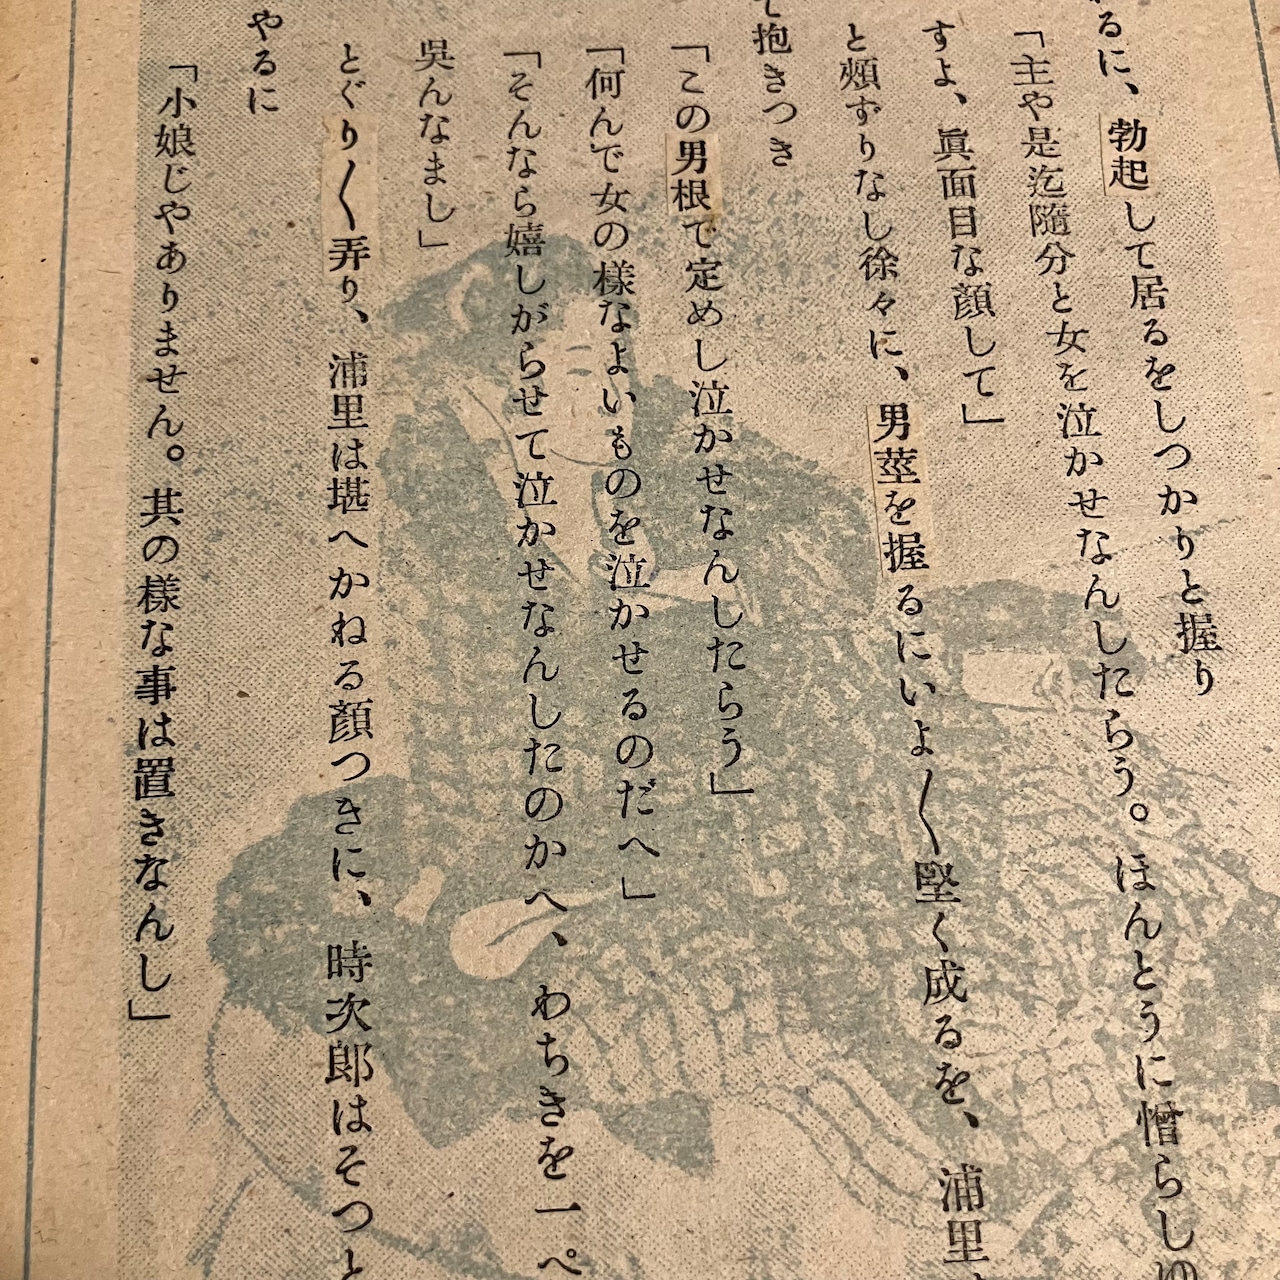 るに、勃起して居るをしつかりと握り
「主や是迄隨分と女を泣かせなんしたらう。ほんとうに憎らし
すよ、眞面目な顔して」
と頰ずりなし徐々に、男莖を握るにいよ〱堅く成るを、浦里
て抱きつき
「この男根で定めし泣かせなんしたらう」
「何んで女の樣なよいものを泣かせるのだへ」
「そんなら嬉しがらせて泣かせなんしたのかへ、わちきを一ペ
呉んなまし」
とぐり〱弄り、浦里は堪へかねる顔つきに、時次郎はそつと
やるに
「小娘じやありません。其の樣な事は置きなんし」